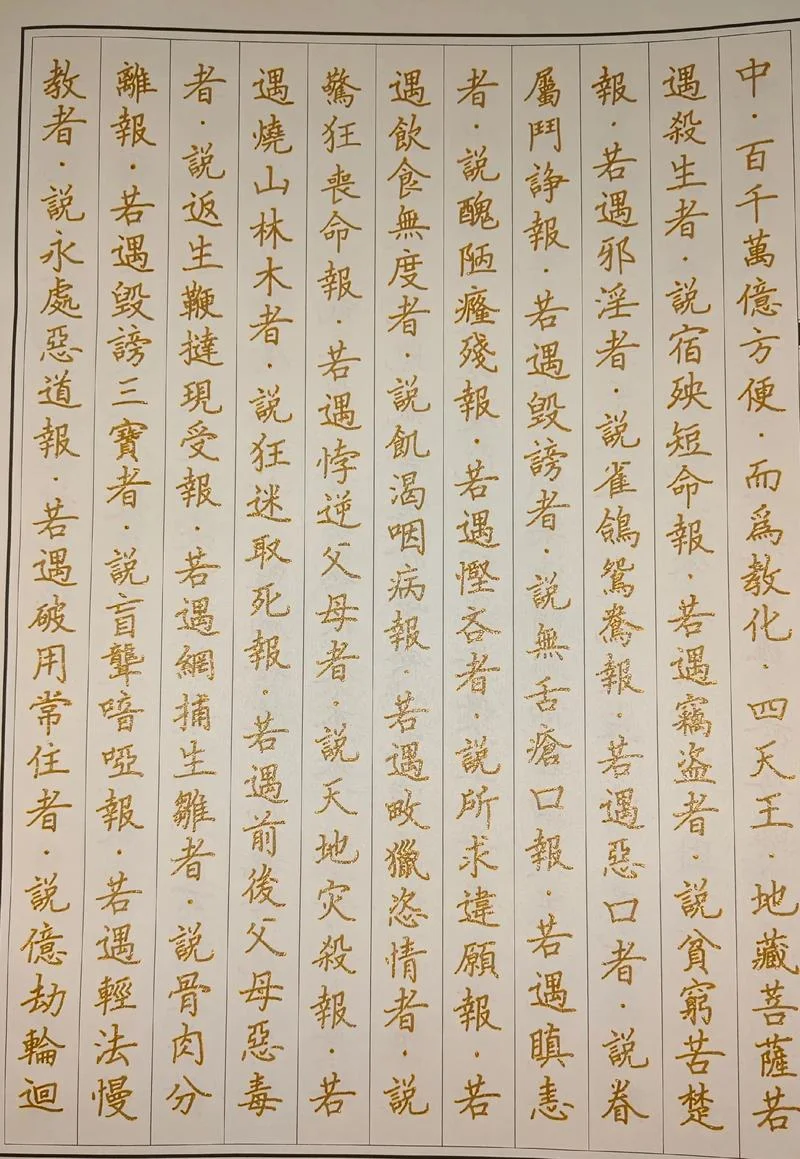 中·百千萬億方便·而爲教化·四天王·地藏菩薩若
遇殺生者·説宿殃短命報·若遇竊盗者·説貧窮苦楚
報·若遇邪淫者·説雀鴿鴛鴦報·若遇惡口者·説眷
屬鬥諍報·若遇毀謗者·説無舌瘡口報·若遇瞋恚
者·説醜陋癃殘報·若遇慳吝者·説所求違願報·若
遇飲食無度者·説飢渴咽病報·若遇畋獵恣情者·説
驚狂喪命報·若遇悖逆父母者·説天地灾殺報·若
遇燒山林木者·説狂迷取死報·若遇前後父母惡毒
者·説返生鞭撻現受報·若遇網捕生雛者·説骨肉分
離報·若遇毀謗三寶者·説盲聾喑啞報·若遇輕法慢
教者·説永處惡道報·若遇破用常住者·説億劫輪迴